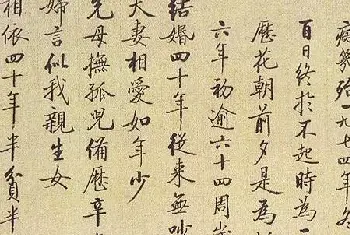 一九七四年冬
百日終於不起時為一
曆花朝前夕是為
六年初逾六十四周歲
結婚四十年從來無吵
夫妻相愛如年少
老母撫孤兒備歷辛
婦言似我親生女
相依四十年半貧半